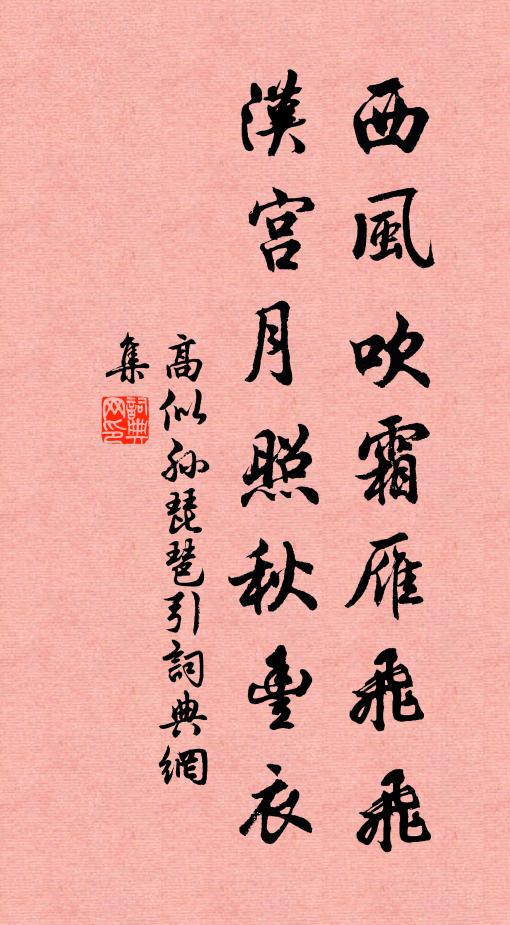 西風吹霜雁飛飛
漢宮月照秋衣
高似孫琵琶引詞典網
集
詞典网印